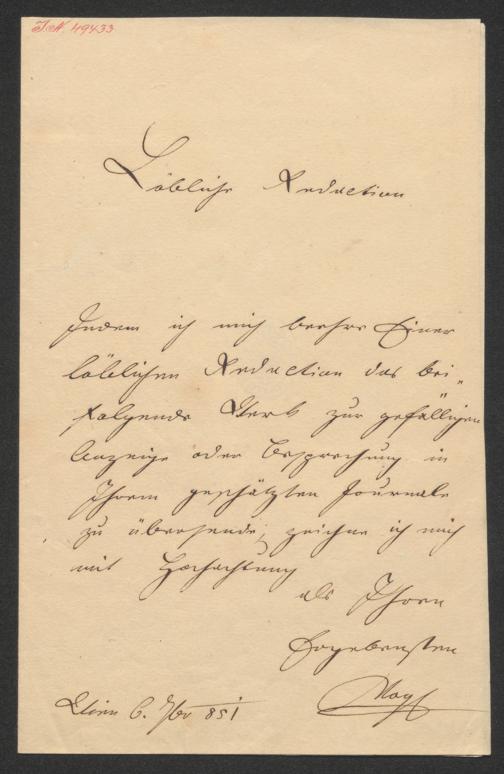 I.N. 49433
Löbliche Redaction
Indem ich mich beehre Einer
löblichen Redaction das bei-
folgende Werk zur gefälligen
Anzeige oder Besprechung in
Ihrem geschätzten Journale
zu übersende, zeichne ich mich
mit Hochachtung
als Ihren
Ergebensten
Wien 6. 851